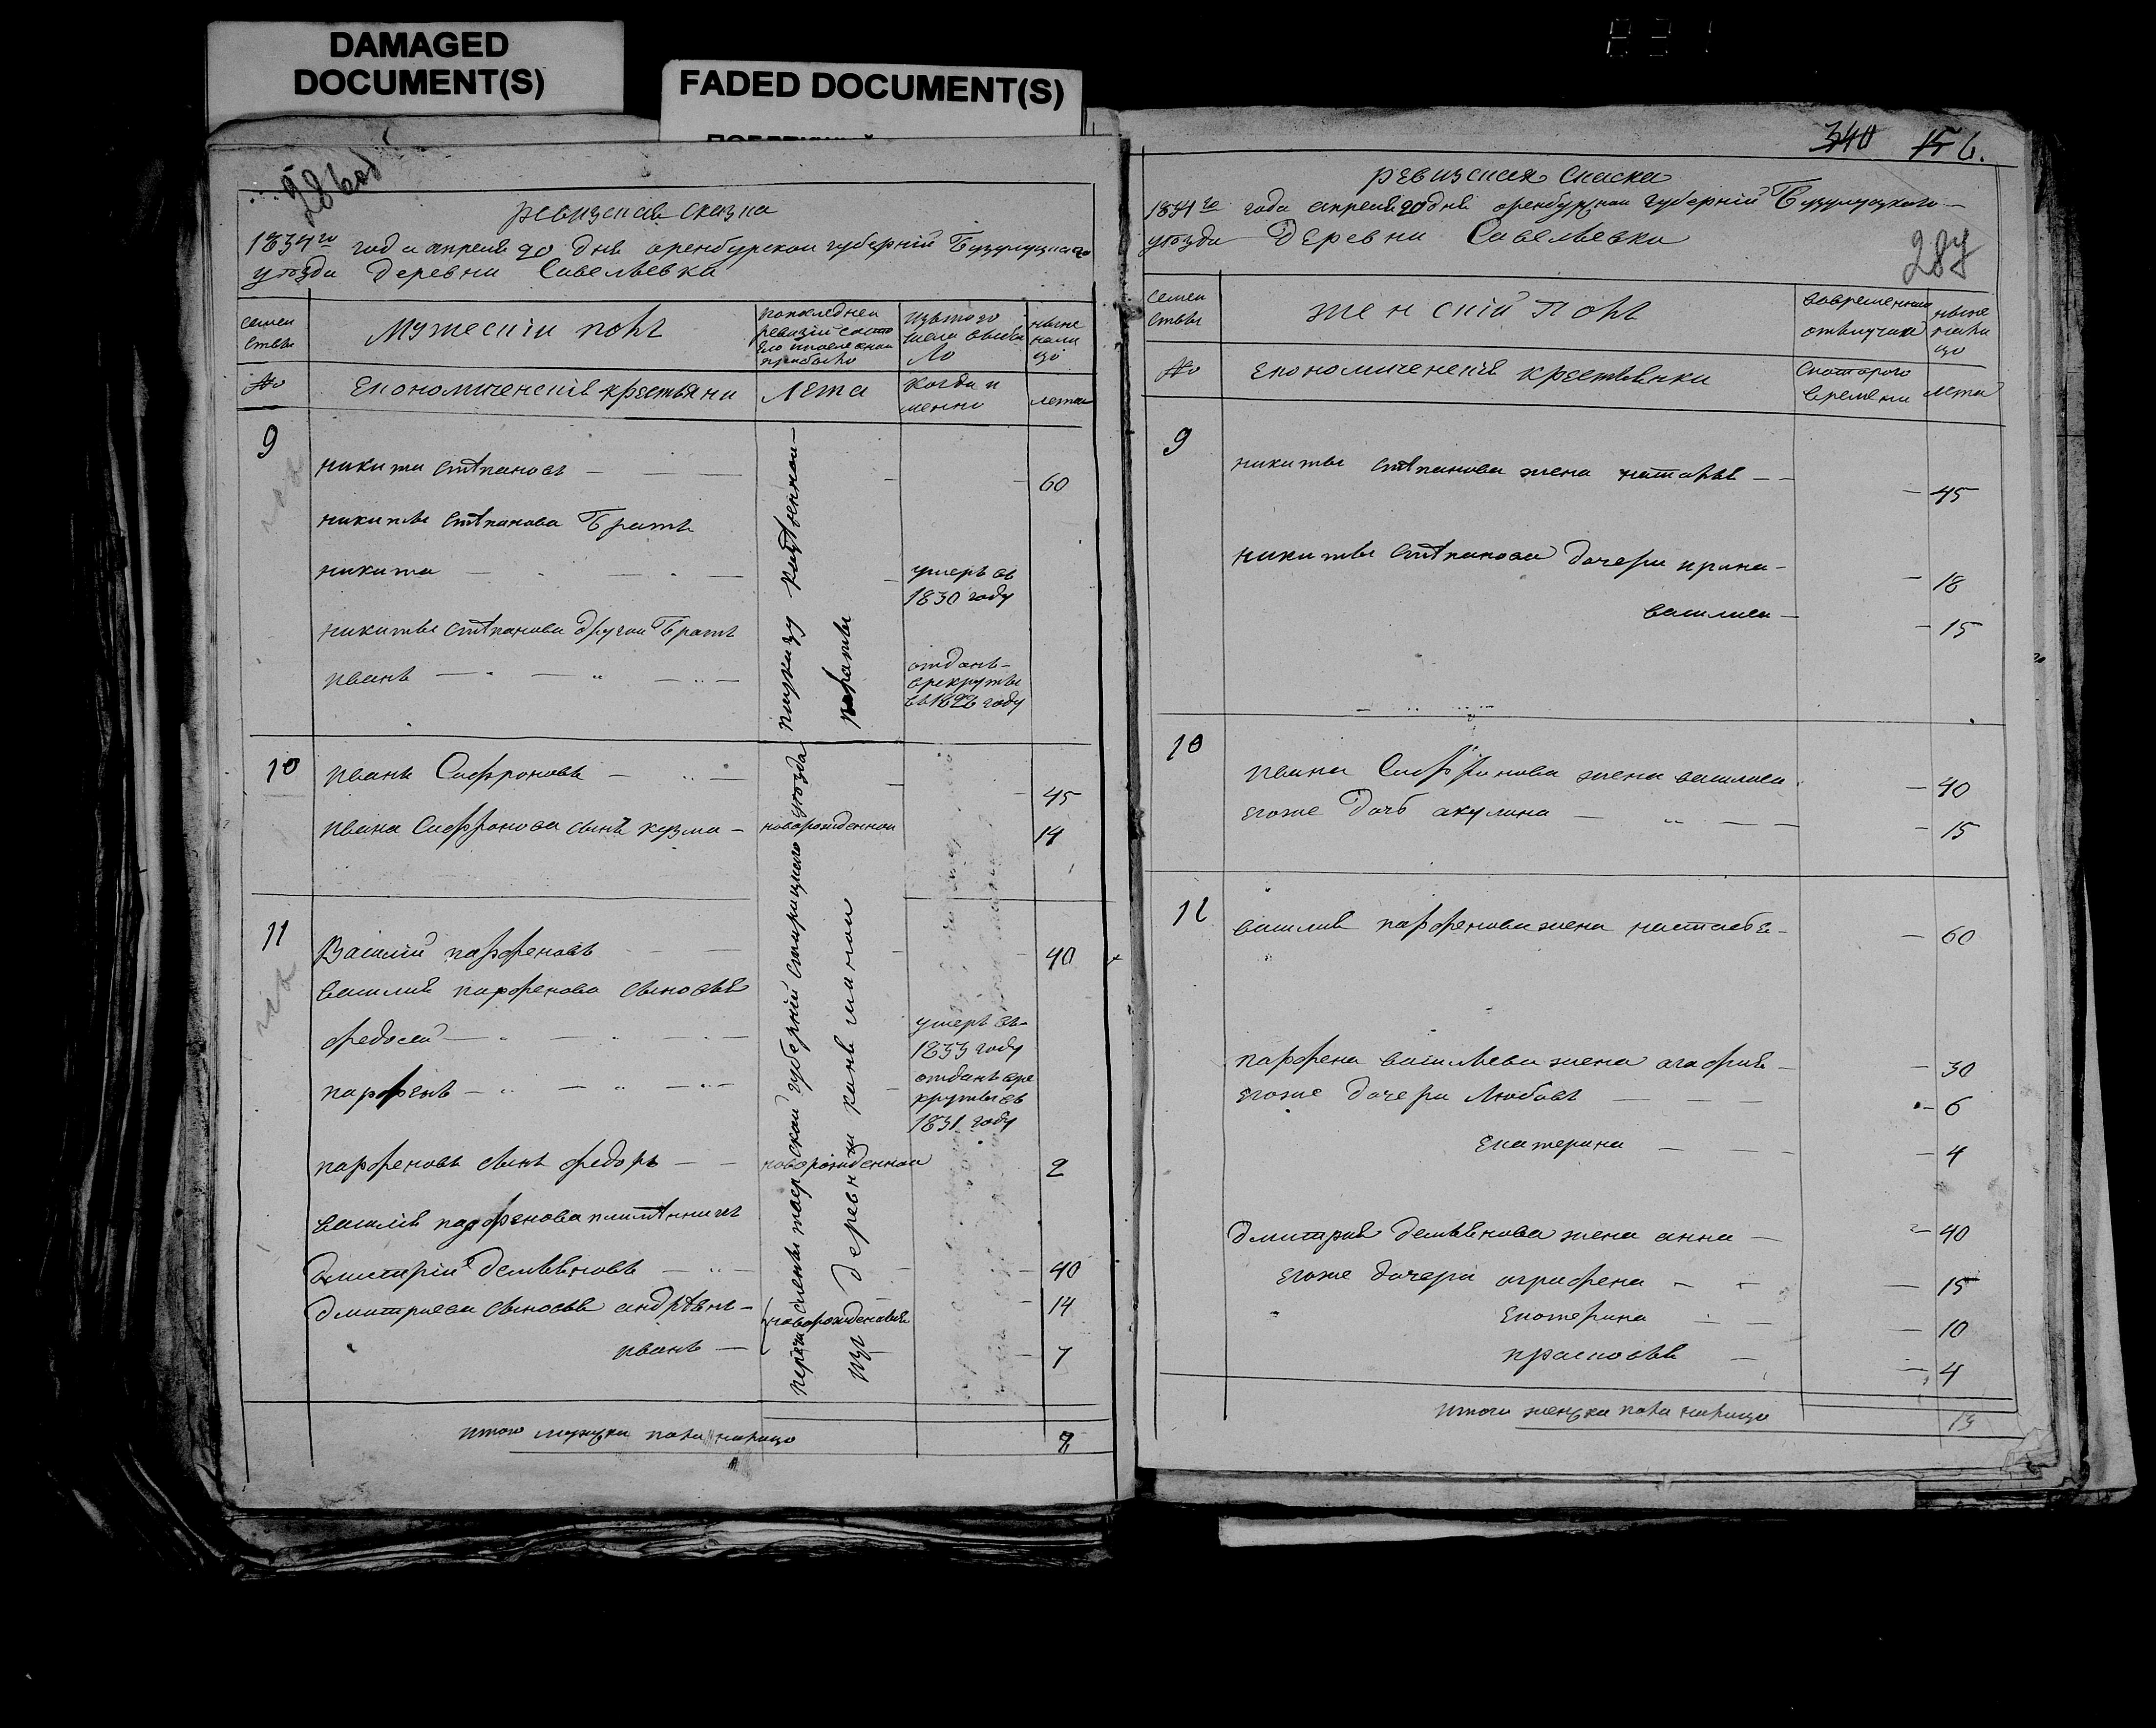 DAMAGED
DOCUMENT(S)
FADED DOCUMENT(S)
286об
ревизская сказка
1834го года апреля 20 дня оренбурской губерній Бузулуцкаго
уезда деревни Савельевки
семеи
ства
Мужескіи полъ
попоследнеи
ревизіи состо
яло и после онои
прибыло
изътого
числа выбы
ло
ныне
нали
цо
№
Економическія крестьяни
Лета
когда и
менно
лета
9
никита степановъ
60
никиты степанова Братъ
никита
умеръ въ
1830 году
никиты степанова другои Братъ
иванъ
отданъ
врекруты
в 1826 году
10
иванъ Сафроновъ
45
ивана Сафронова сынъ кузма
новорожденнои
14
11
Василій парфеновъ
40
василия парфенова сыновья
федосеи
умеръ въ
1833 году
парфенъ
отданъ вре
круты въ
1831 году
парфеновъ сынъ федоръ
новорожденнои
2
василія парфенова племянникъ
дмитріи демьяновъ
40
дмитриева сыновья андреянъ
новорожденныя
14
иванъ
7
перечислены тверскои губерній старицкаго уезда
из деревни
итого мужска пола налицо
340
15 6.
ревизская сказка
1834го года апреля 20 дня оренбурскои губерній Бузулуцкаго
уезда Деревни Савельевки
287
семеи
ства
женскій Полъ
вовременнои
отлучки
ныне
нали
цо
№
Економическія крестьянки
скоторого
времени
лета
9
никиты степанова жена наталья
45
никиты степанова дочери ирина
18
василиса
15
10
ивана Сафронова жена василиса
40
егоже дочь акулина
15
11
василия парфенова жена настасья
60
парфена васильева жена агафия
30
егоже дочери любовь
6
Екатерина
4
дмитрия демьянова жена анна
40
егоже дочери аграфена
15
Екатерина
10
прасковья
4
итого женска пола налицо
13